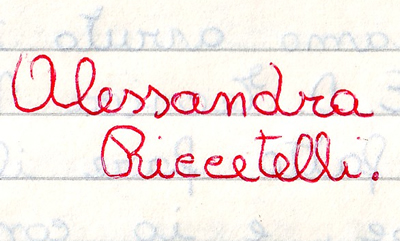 Alessandra
Riccetelli.